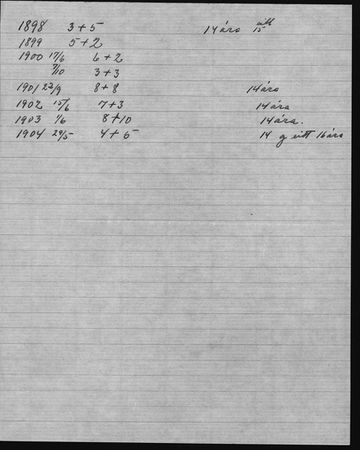 1898 3+5 14 ára útl 15
1899 5+2
1900 17/6 6+2
9/10 3+3
1901 23/9 8+8 14 ára
1902 15/6 7+3 14 ára
1903 1/6 8+10 14 ára.
1904 29/5 4+5 14 g útl 16 ára